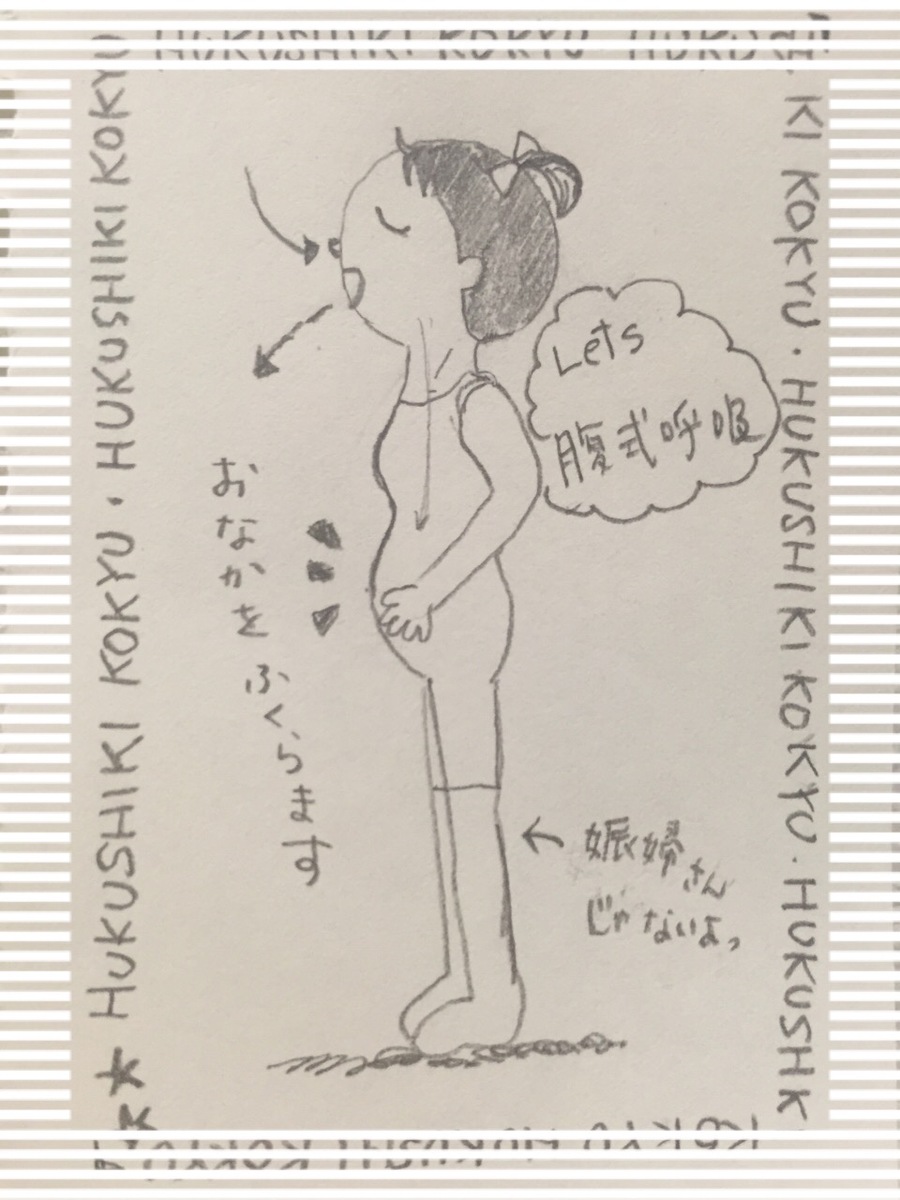 HUKUSHIKI KOKYU HUKUSHI
KI KOKYU・HUKUSHIKI KOKYU・HUKUSHK
★HUKUSHIKI KOKYU・HUKUSHIKI KOKYU
Lets
腹式呼吸
おなかを
ふくらます
←娠婦さん
じゃないよ。